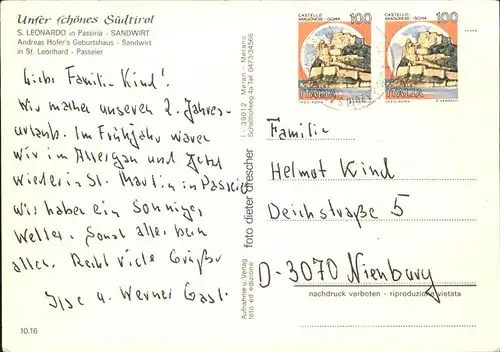 Unser schönes Südtirol
S. LEONARDO in Passiria - SANDWIRT
Andreas Hofer's Geburtshaus - Sandwirt
in St. Leonhard - Passeier
Liebe Familie Kind!
Wir machen unseren 2. Jahres-
urlaub. Im Frühjahr waren
wir im Allergau und jetzt
wieder in St. Martin in Passeier
Wir haben ein sonniges
Wetter. Sonst alles beim
alten. Recht viele Grüße
Ilse u. Werner Gast
10.16
I - 39012 Meran - Merano
Schallhofweg 4a Tel 0473-34566
foto dieter drescher
Aufnahme u. Verlag
foto ed edizione:
CASTELLO
ARAGONESE - ISCHIA 100
ITALIA
CASTELLO
ARAGONESE - ISCHIA 100
ITALIA
Familie
Helmut Kind
Deichstraße 5
D-3070 Nienburg
nachdruck verboten - riproduzione vietata